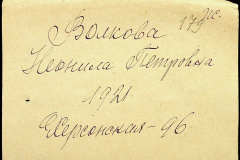 179
Волкова
Неонила Петровна
1921
Херсонская-96